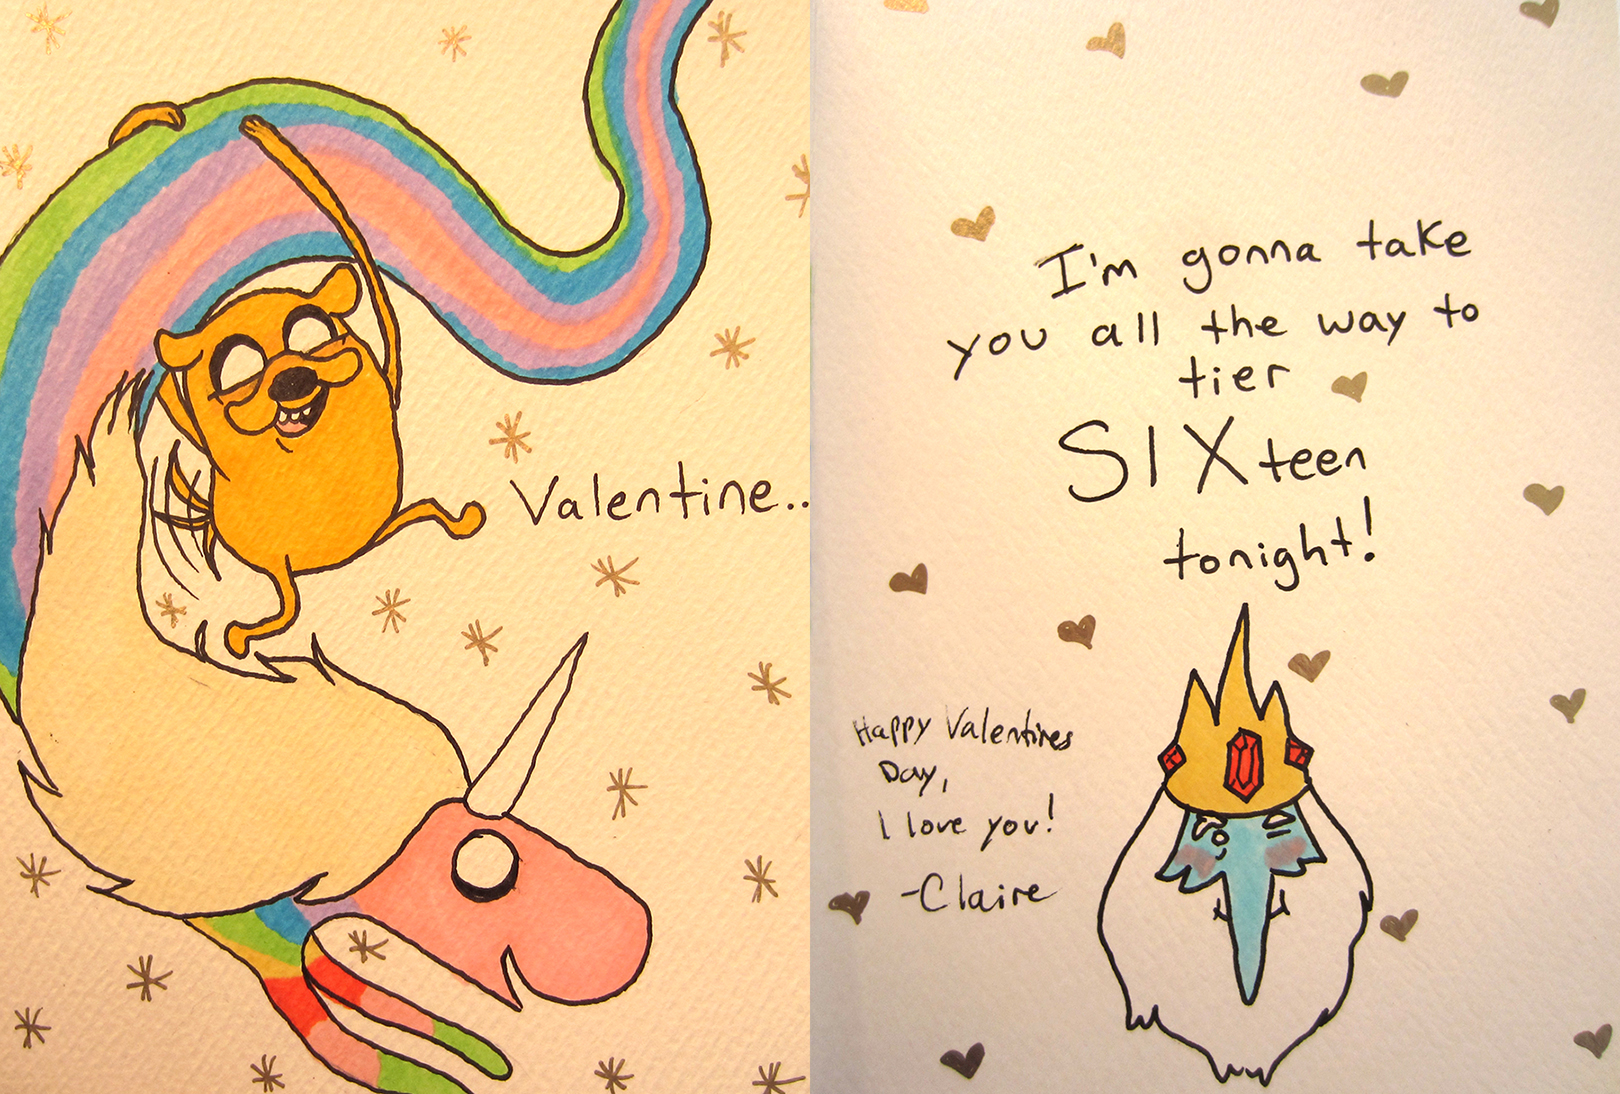 Valentine..
I'm gonna take
you all the way to
tier
SIXteen
tonight!
Happy Valentines
Day,
I love you!
-Claire